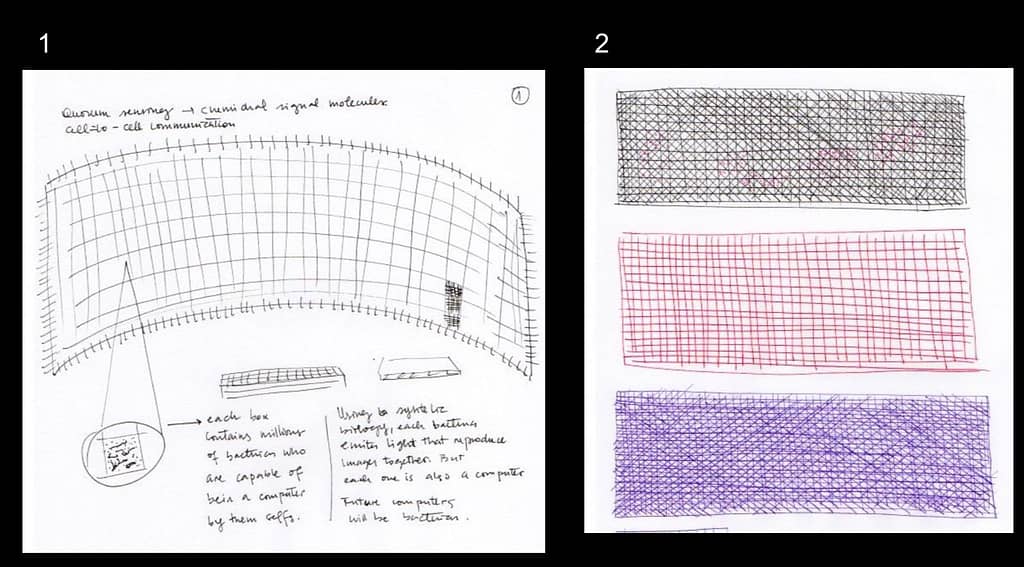 1
2
1
Quorum sensing → chemichal signal molecules
cell-to-cell communication
→ each box
contains millions
of bacterias who
are capable of
bein a computer
by them selfs.
Using
biology, each bacteria
emites light that reproduce
images together. But
each one is also a computer
Future computers
will be bacterian.